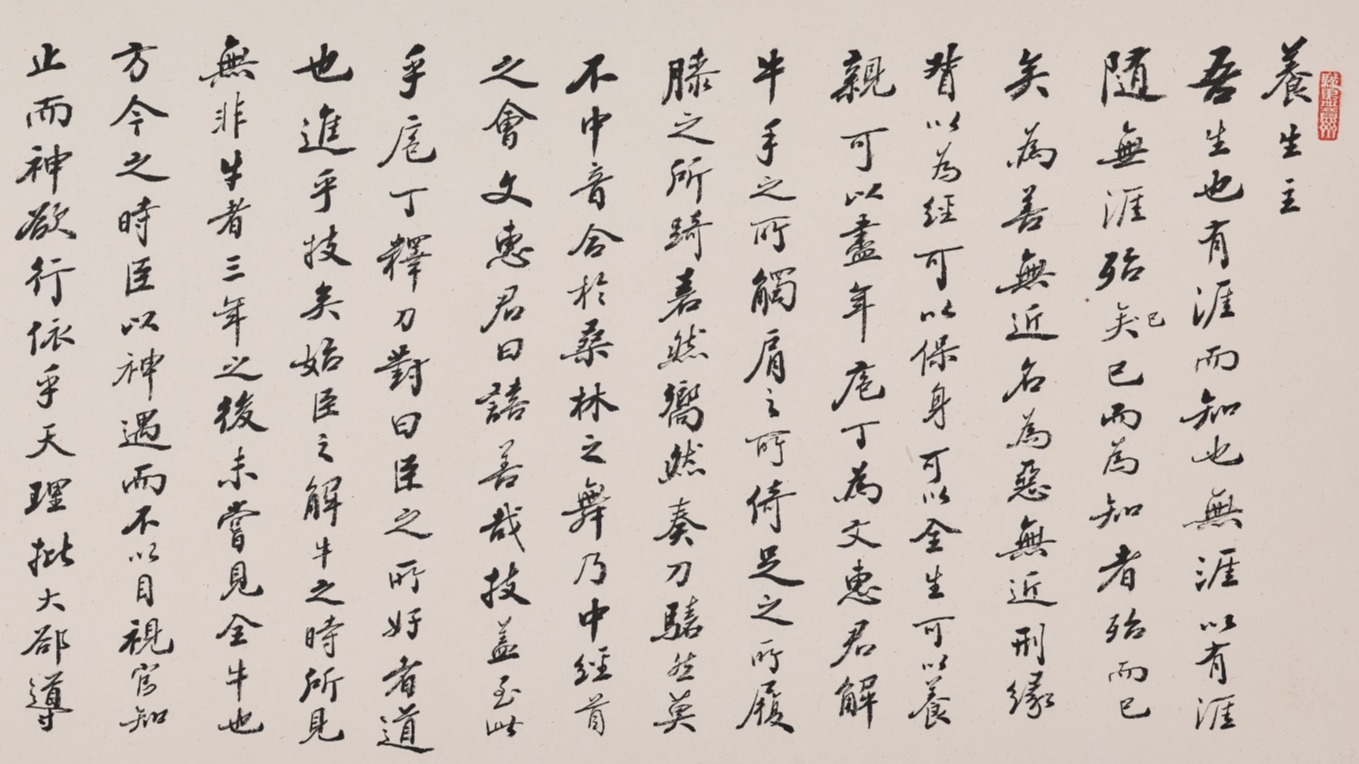 養生主
吾生也有涯而知也無涯以有涯
隨無涯殆已矣已而為知者殆而已
矣為善無近名為惡無近刑緣
督以為經可以保身可以全生可以養
親可以盡年庖丁為文惠君解
牛手之所觸肩之所倚足之所履
膝之所踦砉然嚮然奏刀騞然莫
不中音合於桑林之舞乃中經首
之會文惠君曰譆善哉技蓋至此
乎庖丁釋刀對曰臣之所好者道
也進乎技矣始臣之解牛之時所見
無非牛者三年之後未嘗見全牛也
方今之時臣以神遇而不以目視官知
止而神欲行依乎天理批大郤導